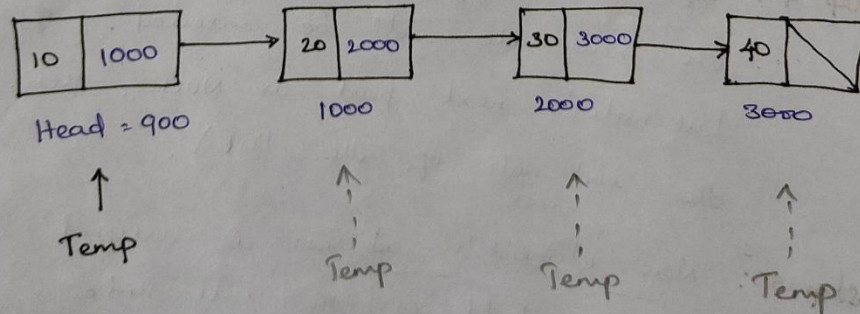 10 1000 20 2000 30 3000 40
Head = 900 1000 2000 3000
Temp Temp Temp Temp